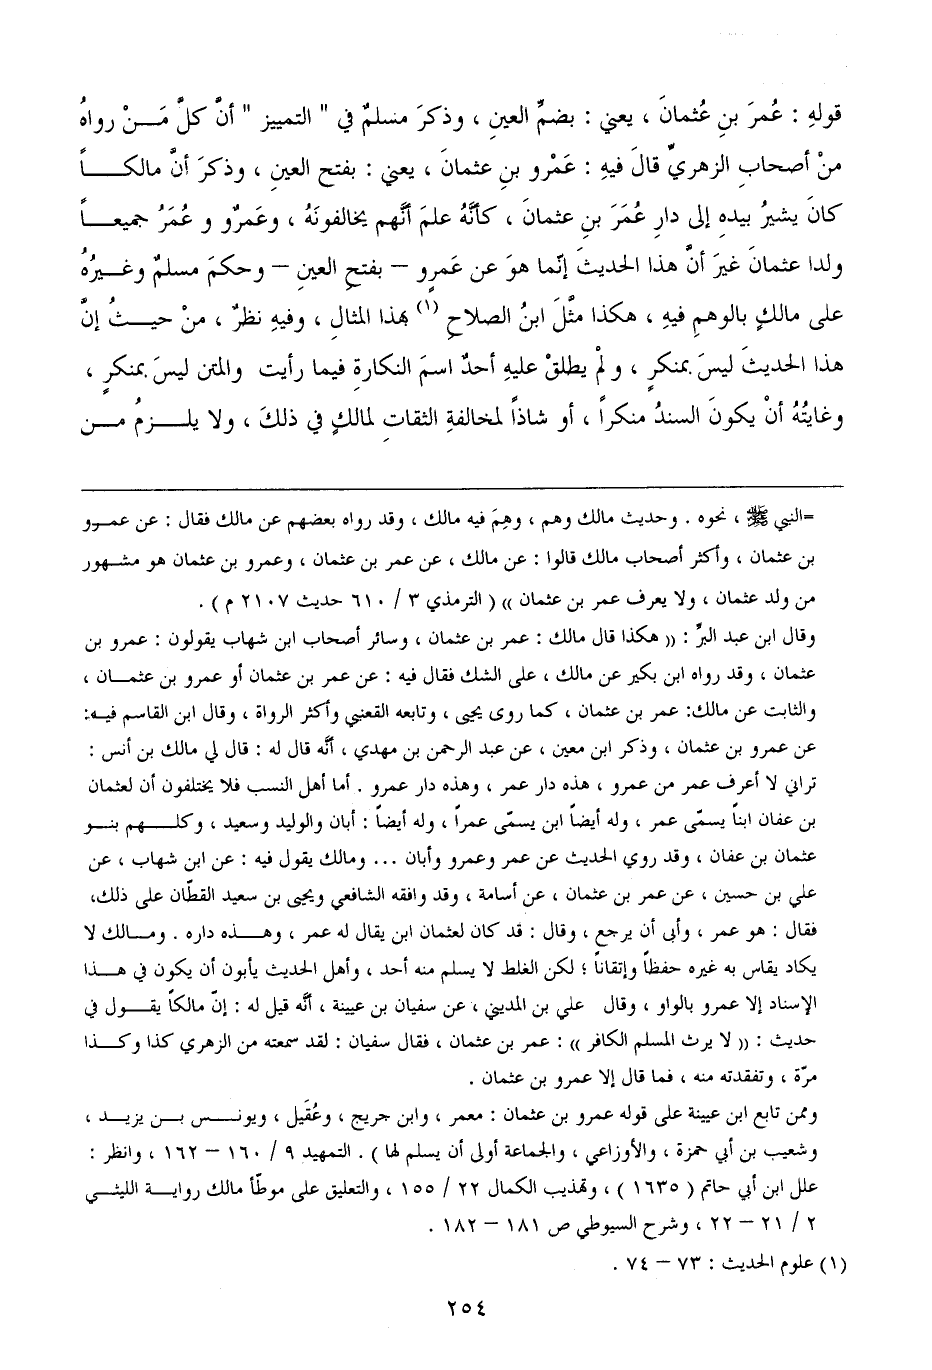 قولهِ : عُمرَ بنِ عُثمانَ ، يعني : بضمِّ العينِ ، وذكرَ مسلمٌ في " التمييز " أنَّ كلَّ مَـــنْ رواهُ
منْ أصحابِ الزهريِّ قالَ فيهِ : عَمْرو بنِ عثمانَ ، يعني : بفتحِ العينِ ، وذكرَ أنَّ مالكــــاً
كانَ يشيرُ بيدهِ إلى دارِ عُمَرَ بنِ عثمانَ ، كأنَّهُ علمَ أنَّهم يخالفونَهُ ، وعَمرٌو و عُمَرُ جميعـــاً
ولدا عثمانَ غيرَ أنَّ هذا الحديثَ إنّما هوَ عن عَمرٍو – بفتحِ العينِ – وحكمَ مسلمٌ وغـــيرُهُ
على مالكٍ بالوهمِ فيهِ ، هكذا مثَّلَ ابنُ الصلاحِ (١) بهذا المثالِ ، وفيهِ نظرٌ ، منْ حيـــثُ إنَّ
هذا الحديثَ ليسَ بمنكرٍ ، ولمْ يطلقْ عليهِ أحدٌ اسمَ النكارةِ فيما رأيت والمتن ليسَ بمنكرٍ ،
وغايتُهُ أنْ يكونَ السندُ منكراً ، أو شاذاً لمخالفةِ الثقاتِ لمالكٍ في ذلكَ ، ولا يلـــزمُ مـــن
=النبي ﷺ ، نحوه . وحديث مالك وهم ، وهِمَ فيه مالك ، وقد رواه بعضهم عن مالك فقال : عن عمـرو
بن عثمان ، وأكثر أصحاب مالك قالوا : عن مالك ، عن عمر بن عثمان ، وعمرو بن عثمان هو مشـهور
من ولد عثمان ، ولا يعرف عمر بن عثمان )) ( الترمذي ٣ / ٦١٠ حديث ٢١٠٧ م ) .
وقال ابن عبد البرِّ : (( هكذا قال مالك : عمر بن عثمان ، وسائر أصحاب ابن شهاب يقولون : عمرو بن
عثمان ، وقد رواه ابن بكير عن مالك ، على الشك فقال فيه : عن عمر بن عثمان أو عمرو بن عثمـان ،
والثابت عن مالك: عمر بن عثمان ، كما روى يحيى ، وتابعه القعنبي وأكثر الرواة ، وقال ابن القاسم فيـه:
عن عمرو بن عثمان ، وذكر ابن معين ، عن عبد الرحمن بن مهدي ، أنّه قال له : قال لي مالك بن أنس :
تراني لا أعرف عمر من عمرو ، هذه دار عمر ، وهذه دار عمرو . أما أهل النسب فلا يختلفون أن لعثمان
بن عفان ابناً يسمّى عمر ، وله أيضاً ابن يسمّى عمراً ، وله أيضاً : أبان والوليد وسعيد ، وكلـــهم بنـو
عثمان بن عفان ، وقد روي الحديث عن عمر وعمرو وأبان ... ومالك يقول فيه : عن ابن شهاب ، عن
علي بن حسين ، عن عمر بن عثمان ، عن أسامة ، وقد وافقه الشافعي ويحيى بن سعيد القطّان على ذلك،
فقال : هو عمر ، وأبى أن يرجع ، وقال : قد كان لعثمان ابن يقال له عمر ، وهـــذه داره . ومـالك لا
يكاد يقاس به غيره حفظاً وإتقاناً ؛ لكن الغلط لا يسلم منه أحد ، وأهل الحديث يأبون أن يكون في هـــذا
الإسناد إلا عمرو بالواو ، وقال علي بن المديني ، عن سفيان بن عيينة ، أنَّه قيل له : إنّ مالكاً يقـــول في
حديث : (( لا يرث المسلم الكافر )) : عمر بن عثمان ، فقال سفيان : لقد سمعته من الزهري كذا وكـــذا
مرّة ، وتفقدته منه ، فما قال إلا عمرو بن عثمان .
وممن تابع ابن عيينة على قوله عمرو بن عثمان : معمر ، وابن جريج ، وعُقَيل ، ويونـــس بـــن يزيـد ،
وشعيب بن أبي حمزة ، والأوزاعي ، والجماعة أولى أن يسلم لها ) . التمهيد ٩ / ١٦٠ – ١٦٢ ، وانظر :
علل ابن أبي حاتم ( ١٦٣٥ ) ، وتهذيب الكمال ٢٢ / ١٥٥ ، والتعليق على موطّأ مالك روايـــة الليثـــي
٢ / ٢١ – ٢٢ ، وشرح السيوطي ص ١٨١ – ١٨٢ .
(١) علوم الحديث : ٧٣ – ٧٤ .
٢٥٤